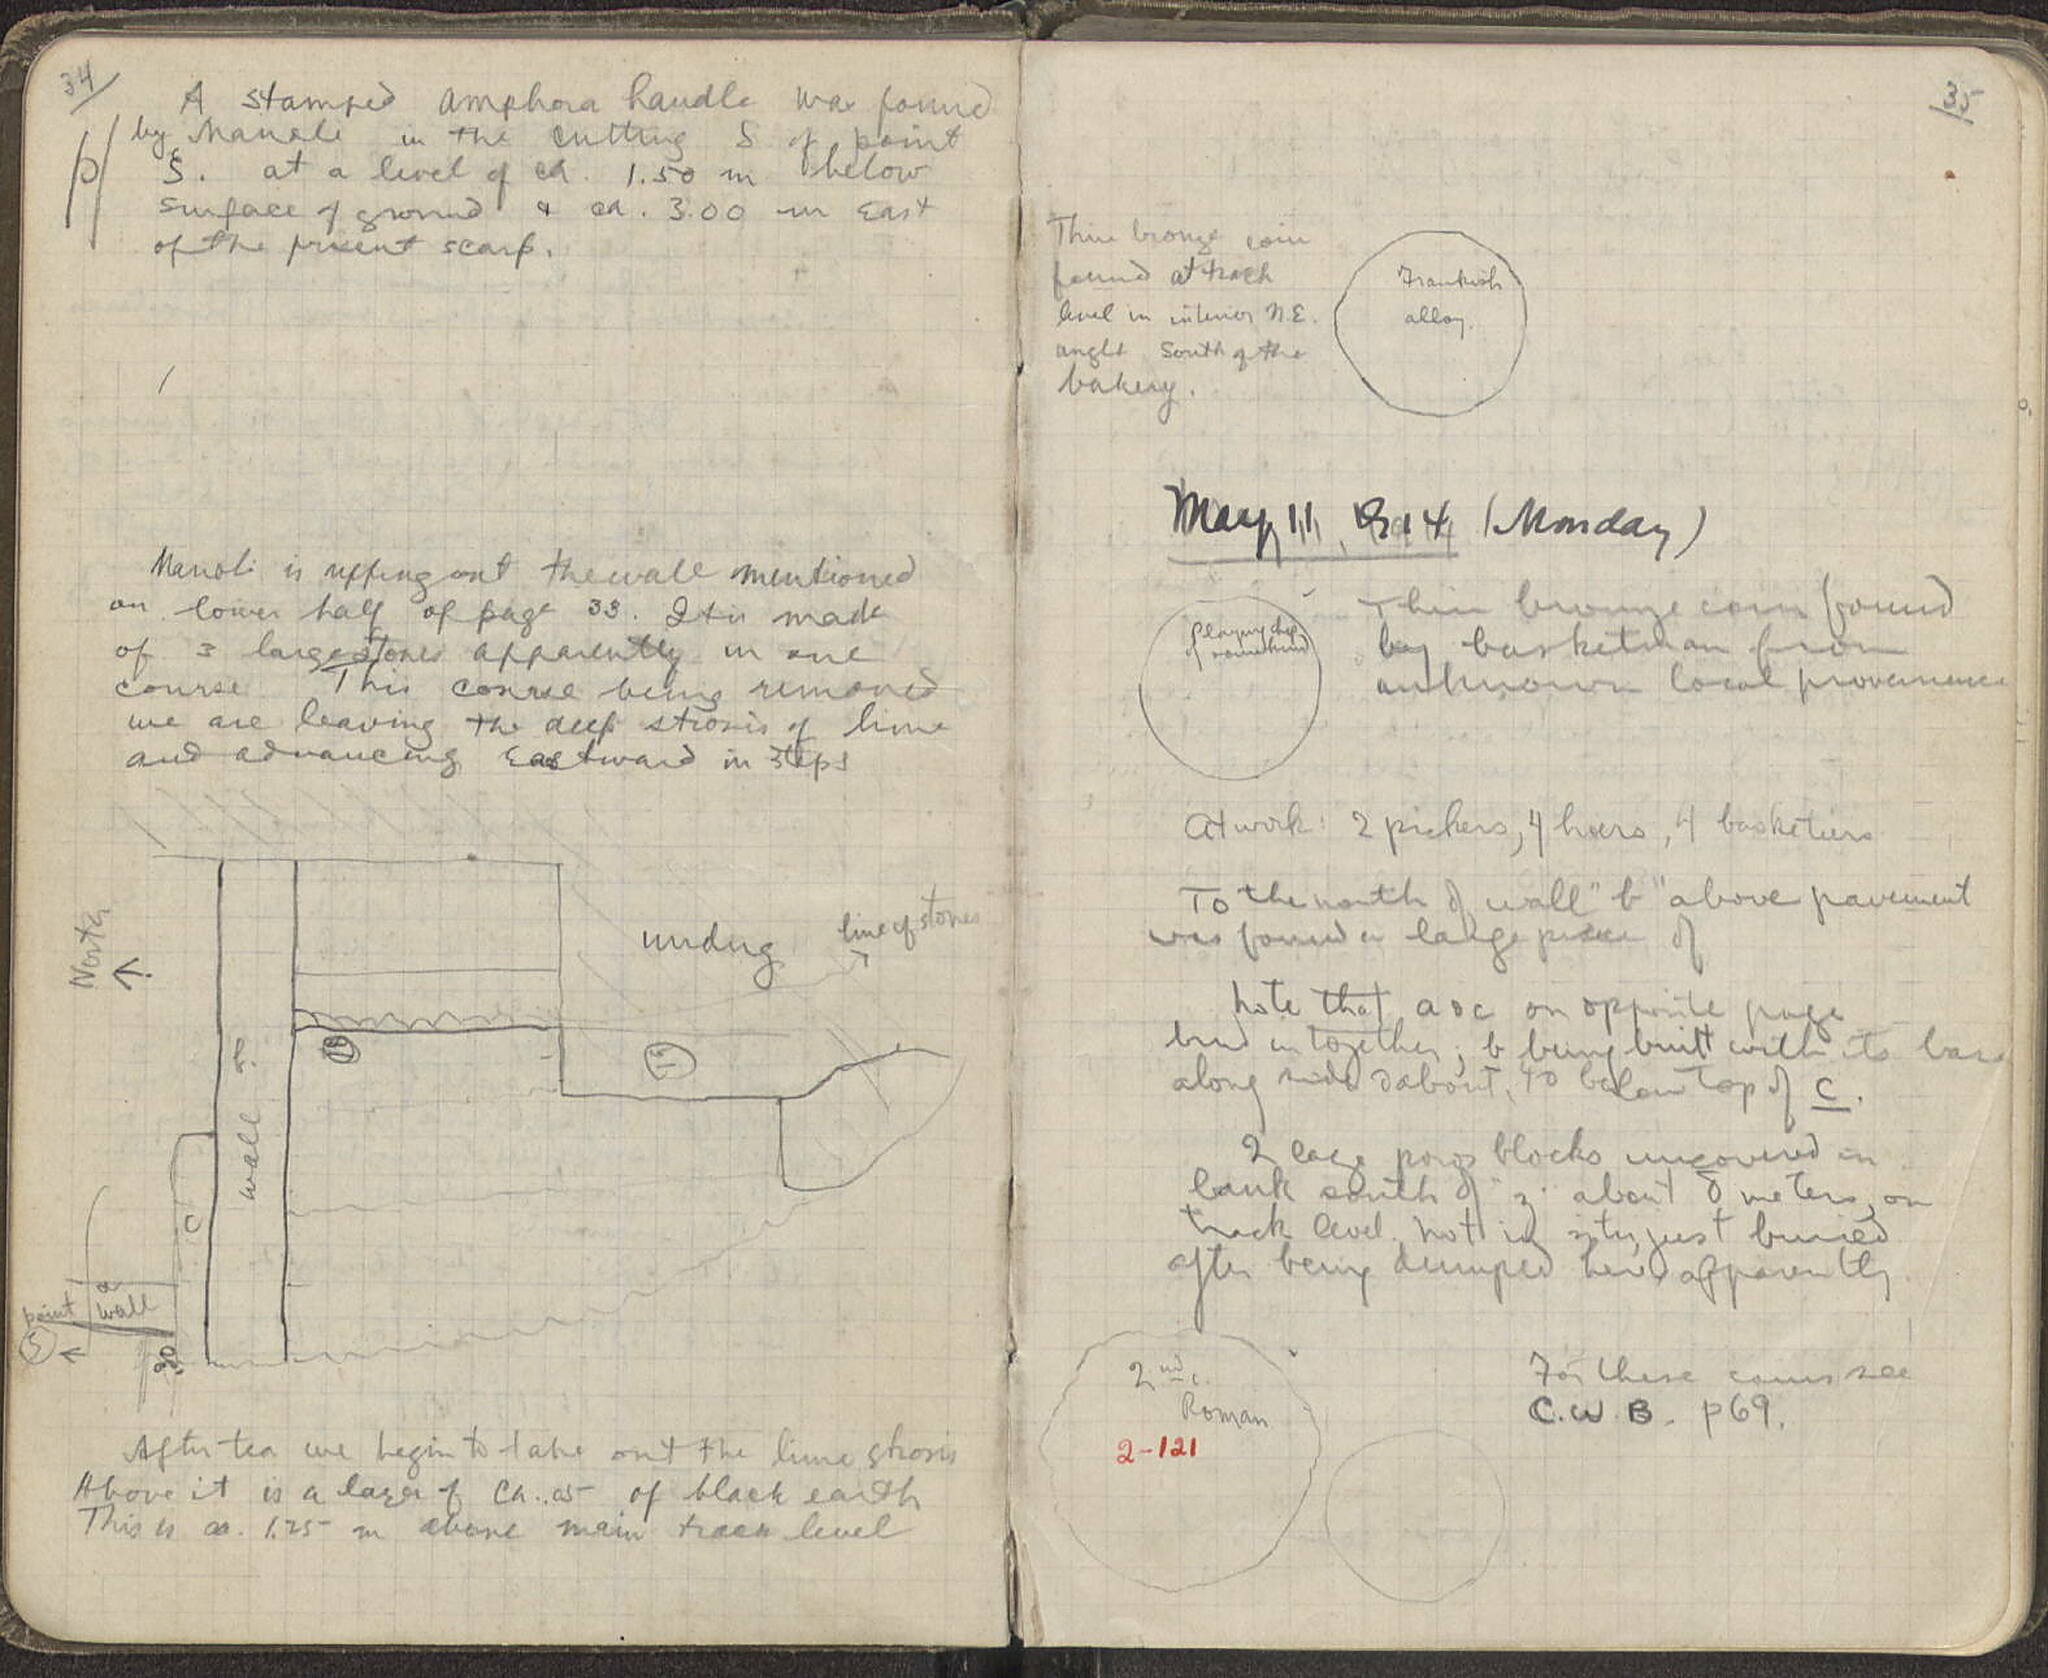 34
A stamped amphora handle was found
by Manoli in the cutting S of point
S. at a level of ca. 1.50 m below
surface of ground & ca. 3.00 m East
of the present scarp.
Manoli is ripping out the wall mentioned
on lower half of page 33. It is made
of 3 large stones apparently in one
course. This course being removed
we are leaving the deep strosis of lime
and advancing Eastward in steps
North
undug
line of stones
wall
c
a
point wall
S
After tea we begin to take out the lime strosis
Above it is a layer of ca. .05 of black earth
This is ca. 1.25 m above main track level
35
Thin bronze coin
found at track
level in interior N.E.
angle South of the
bakery.
Frankish
alloy.
May 11, 1914 (Monday)
playing chip
or something
Thin bronze coin found
by basketman from
unknown local provenience
At work: 2 pickers, 4 hoers, 4 basketeers
To the north of wall "b" above pavement
was found a large piece of
Note that a & c on opposite page
bind in together; b being built with its base
along side & about .10 below top of c.
2 large poros blocks uncovered in
bank south of z. about 8 meters, on
track level, not in situ, just buried
after being dumped here, apparently
2nd c.
Roman
2-121
For these coins see
C.W.B. p 69.